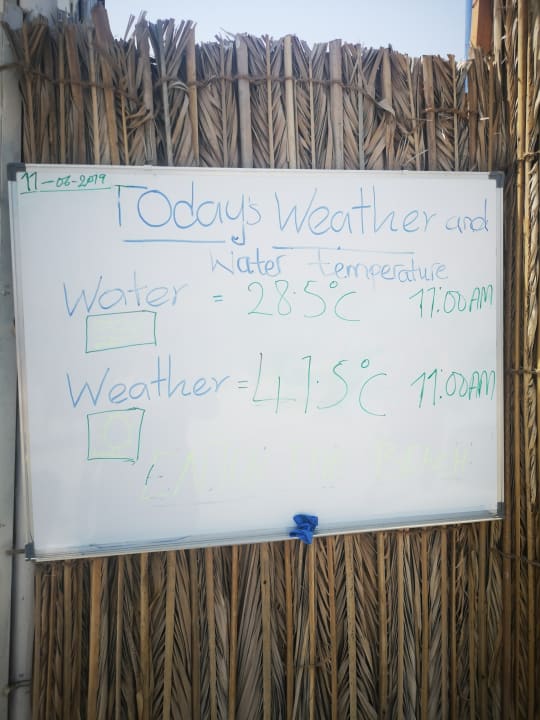 11-06-2019
Today's Weather and
Water temperature
Water = 28.5°C 11:00AM
Weather = 41.5°C 11:00AM
ENJOY THE BEACH